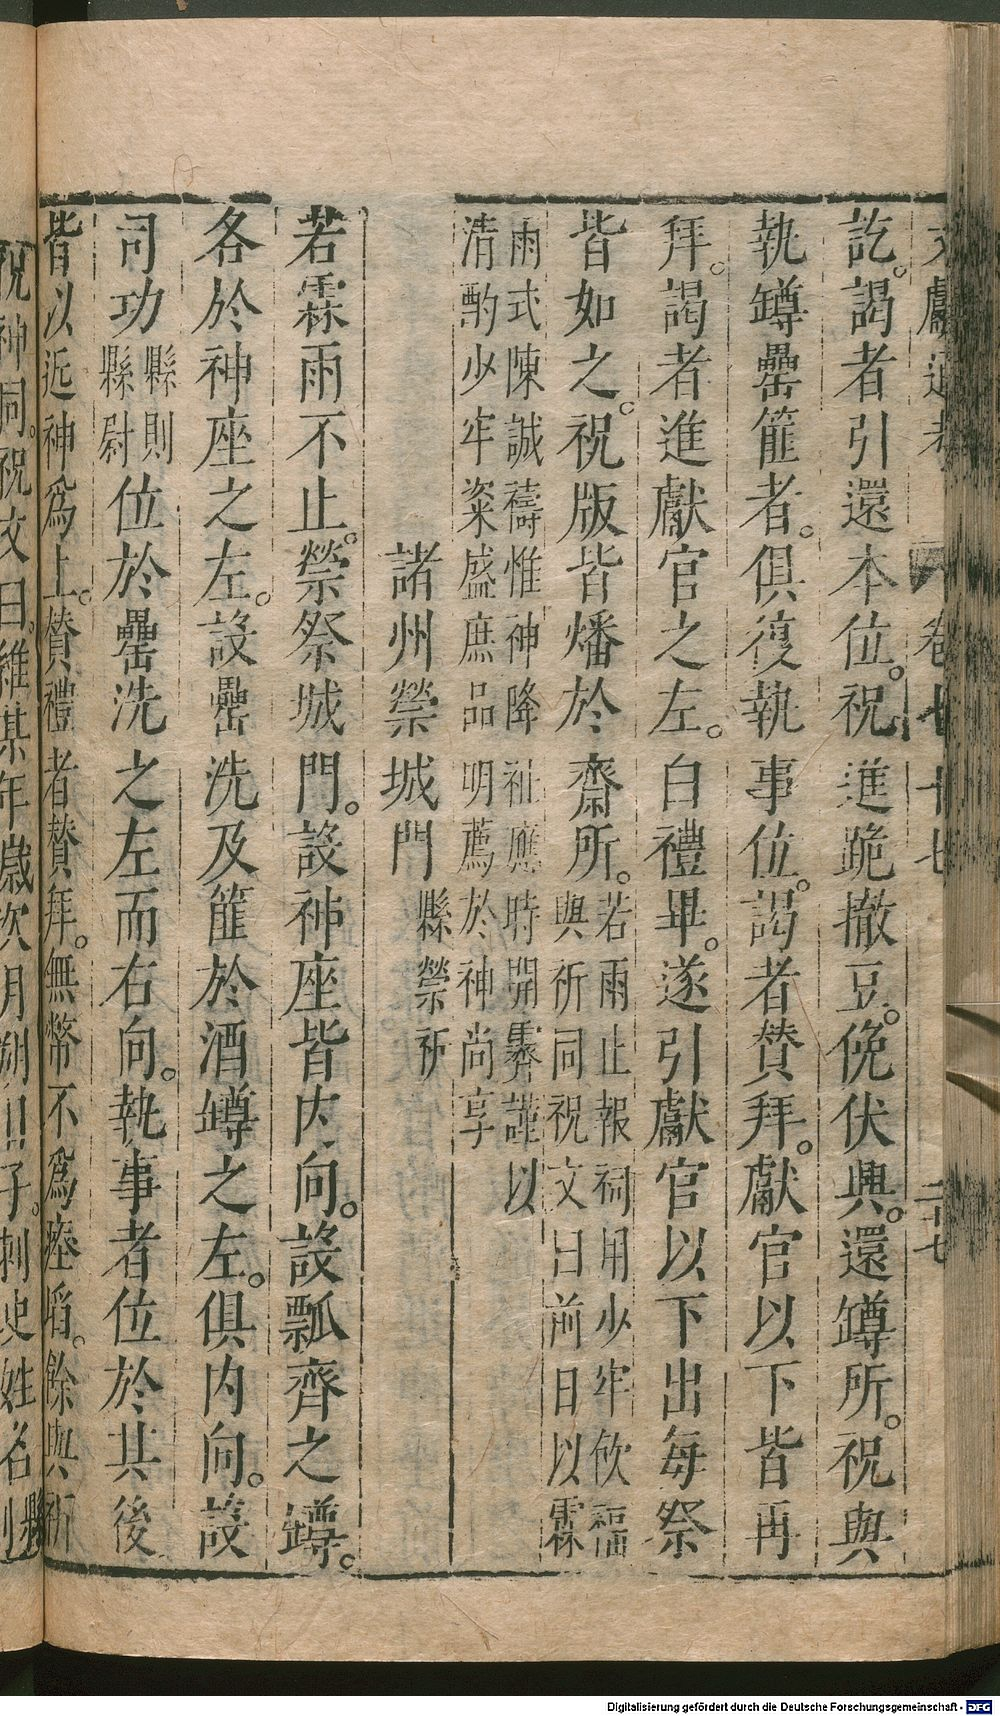 文獻通考 卷七十七 二十七
訖。謁者引還本位。祝進跪撤豆。俛伏興。還罇所。祝與
執罇罍篚者。俱復執事位。謁者贊拜。獻官以下皆再
拜。謁者進獻官之左。白禮畢。遂引獻官以下出每祭
皆如之。祝版皆燔於齋所。
若雨止報祠用少牢飲福
與祈同祝文曰前日以霖
雨式陳誠禱惟神降祉應時開霽謹以
清酌少牢粢盛庶品明薦於神尚享
諸州禜城門 縣禜祈
若霖雨不止。禜祭城門。設神座皆内向。設瓢齊之罇。
各於神座之左。設罍洗及篚於酒罇之左。俱内向。設
司功縣則縣尉位於罍洗之左而右向。執事者位於其後
皆以近神爲上。贊禮者贊拜。無幣不爲瘞埳。餘與祈
祝神同。祝文曰。維某年歲次月朔日子。刺史姓名
Digitalisierung gefördert durch die Deutsche Forschungsgemeinschaft - DFG